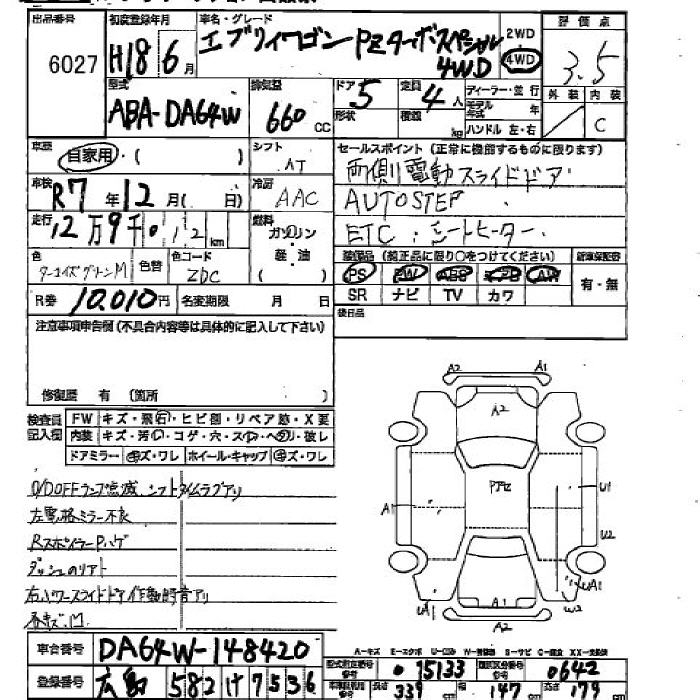 出品番号 初度登録年月 車名・グレード 2WD 評価点
6027 H18 6月 エブリイワゴン PZターボスペシャル 4WD 4WD 3.5
型式 排気量 ドア 5 定員 4人 ディーラー・並行 外装 内装
ABA-DA64W 660cc 形状 積載 kg モデル年式 年 C
ハンドル 左・右
車歴 自家用・( ) シフト AT セールスポイント (正常に機能するものに限ります)
両側電動スライドドア
車検 R7年12月( 日) 冷房 AAC AUTOSTEP
走行 12万9千012km 燃料 ガソリン・軽油 ( ) ETC シートヒーター
色 ターコイズグリーンM 色替 色コード ZDC 装備品 (純正品に限り○をつけてください) 新車保証書
PS PW ABS エアB AW 有・無
R券 10,010円 名変期限 月 日 SR ナビ TV カワ
注意事項申告欄 (不具合内容等は具体的に記入して下さい) 後日品
修復歴 有 (箇所 )
検査員記入欄 FW キズ・飛石・ヒビ割・リペア跡・X要
内装 キズ・汚れ・コゲ・穴・スレ・ヘコ・破レ
ドアミラー キズ・ワレ ホイール・キャップ キズ・ワレ
O/D OFFランプ点滅 シフトタイムラグアリ
左電格ミラー不良
RスポイラーPハゲ
ダッシュのリアト
右パワースライドドア作動時音アリ
A2 A1
A2
A1 U1
U2
A1 A1 W2
A1
A2
車台番号 DA64W-148420
A=キズ E=エクボ
登録番号 広島 582 け 7536
型式指定番号 15133 類別区分番号 0642
長さ 339 幅 147 高さ 179